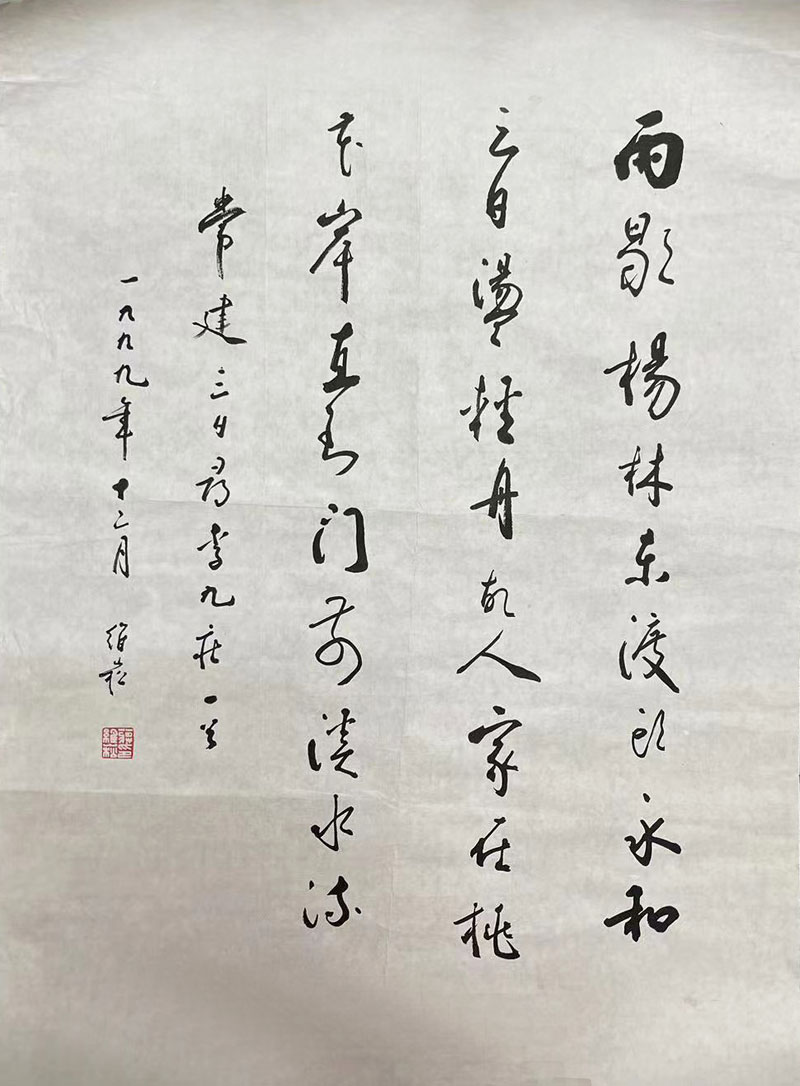 雨歇楊林东渡头永和
三日盪輕舟故人家在桃
花岸直到门前溪水流
常建三日尋李九庄一首
一九九九年十二月